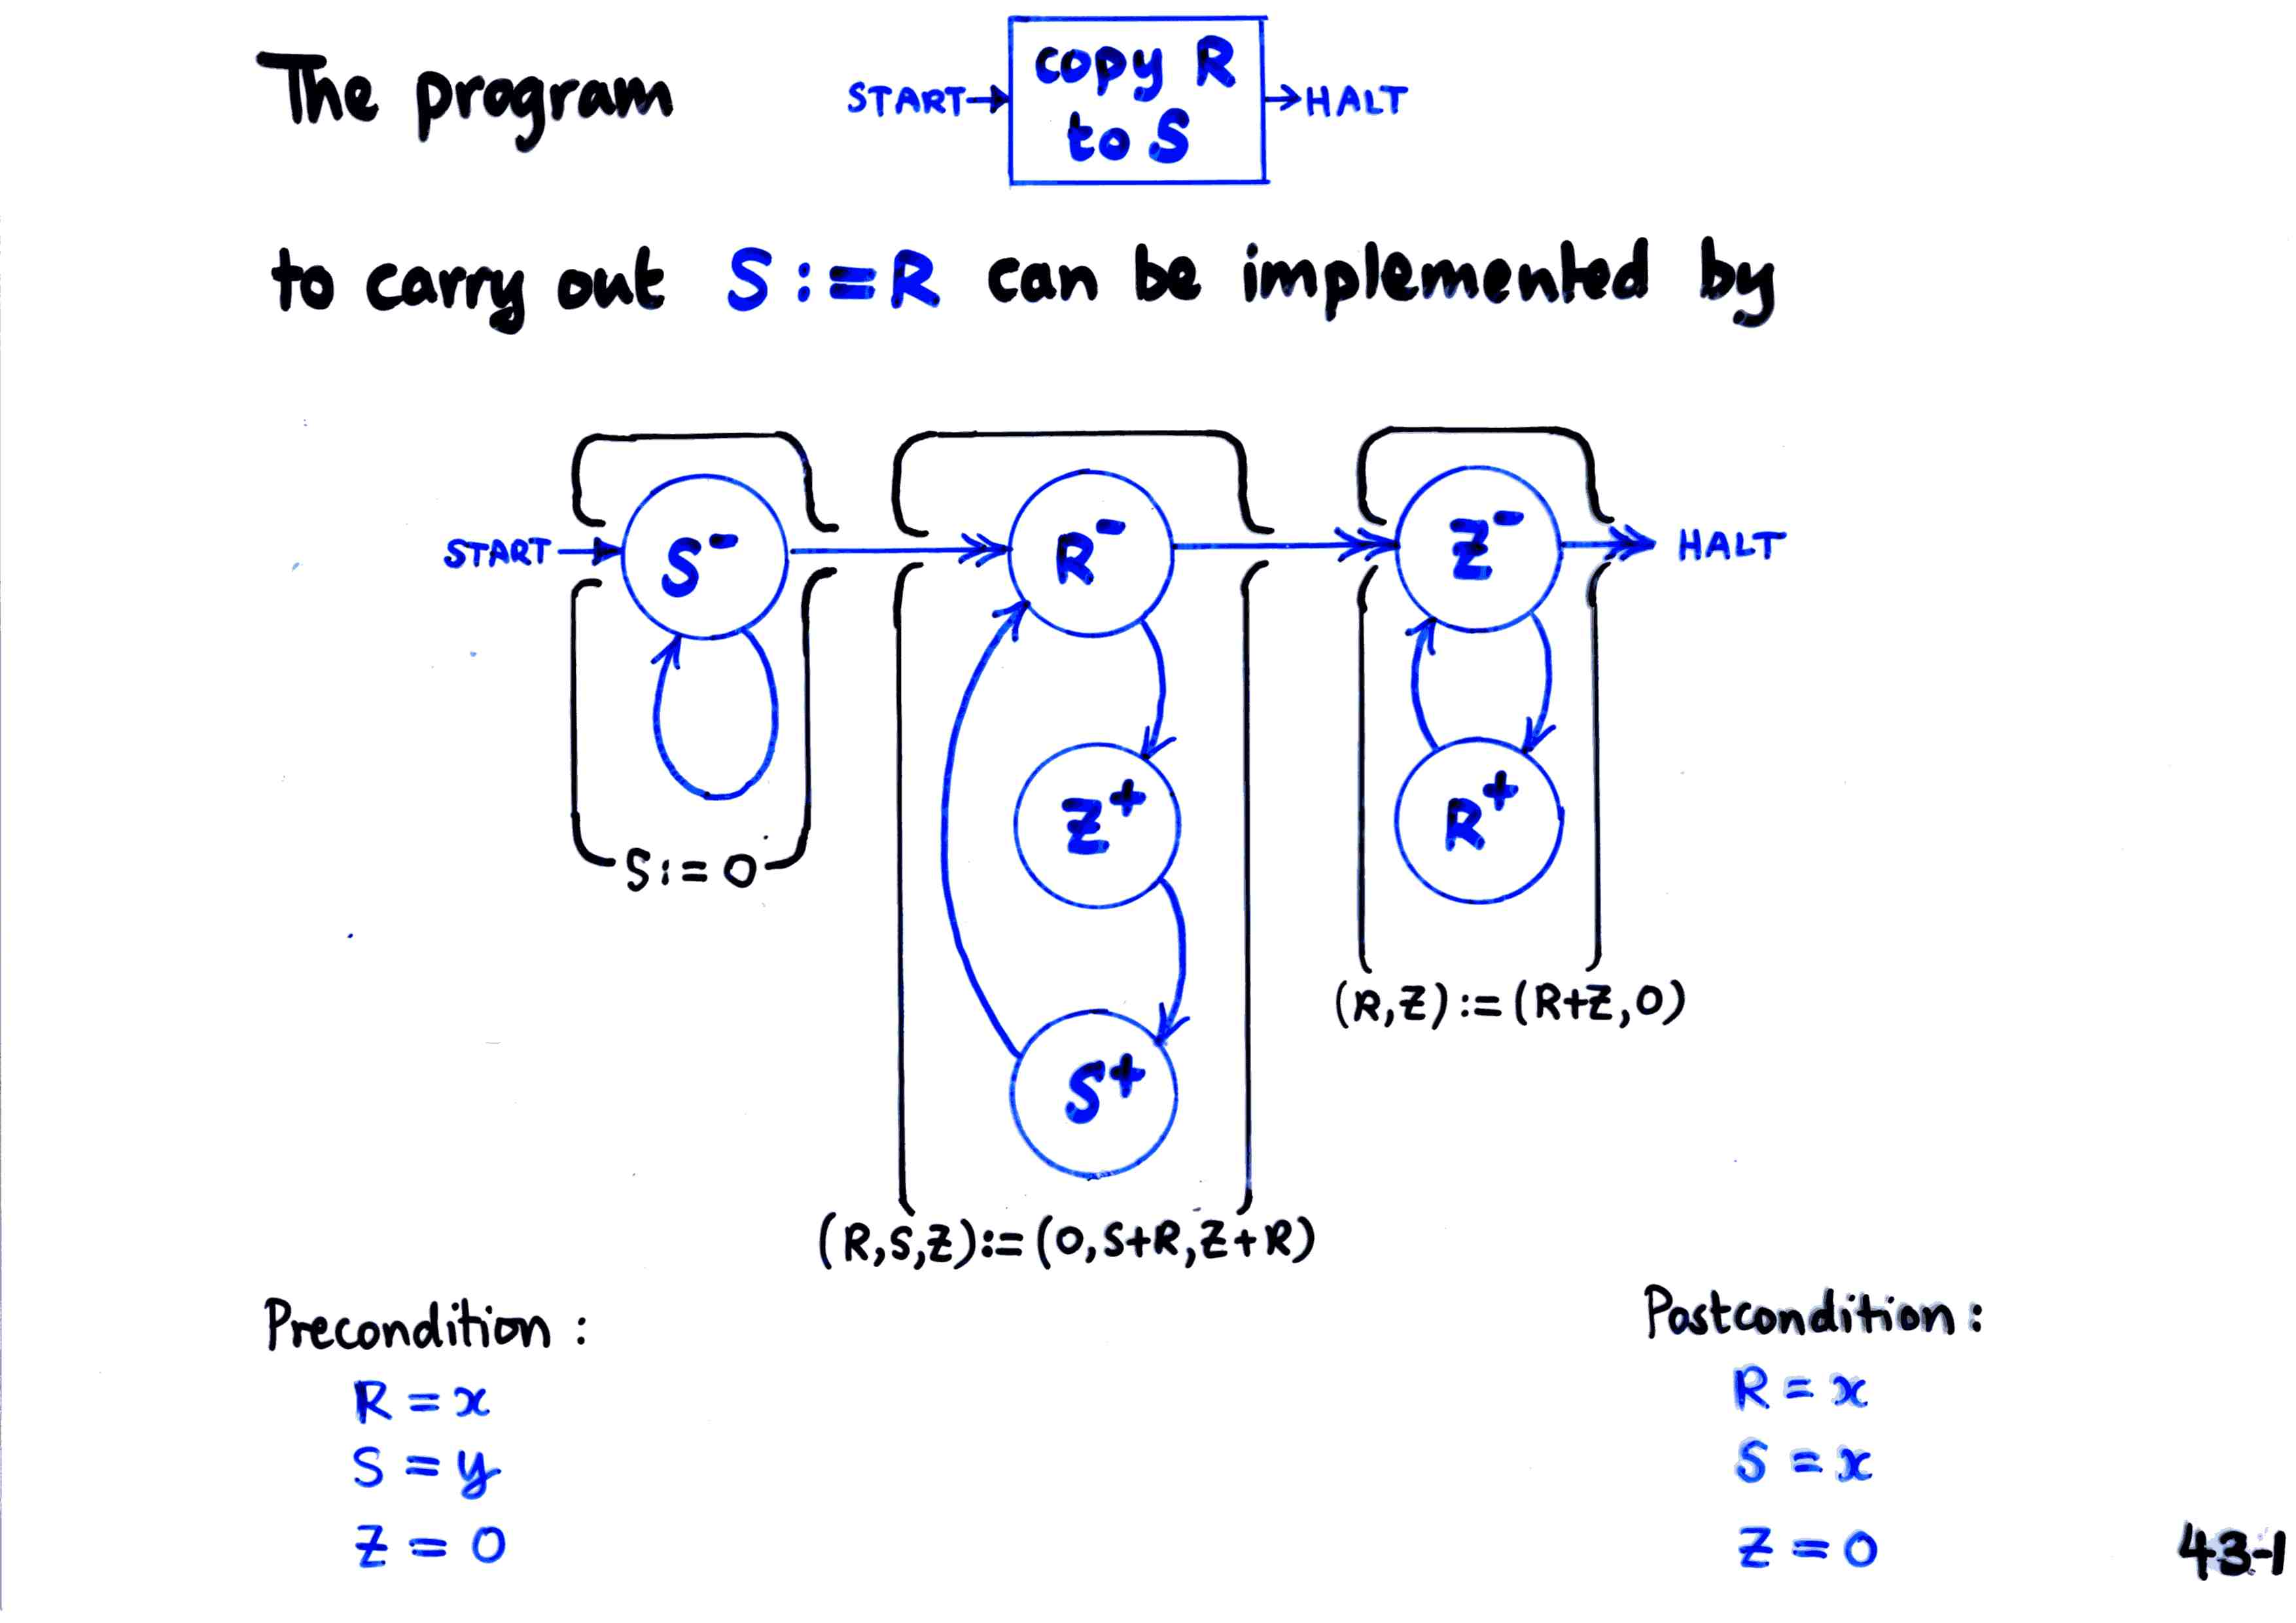 The program
START
copy R
to S
HALT
to carry out S := R can be implemented by
START
S⁻
R⁻
Z⁻
HALT
Z⁺
R⁺
S := 0
S⁺
(R,Z) := (R+Z,0)
(R,S,Z) := (0,S+R,Z+R)
Precondition :
R = x
S = y
Z = 0
Postcondition :
R = x
S = x
Z = 0
43-1